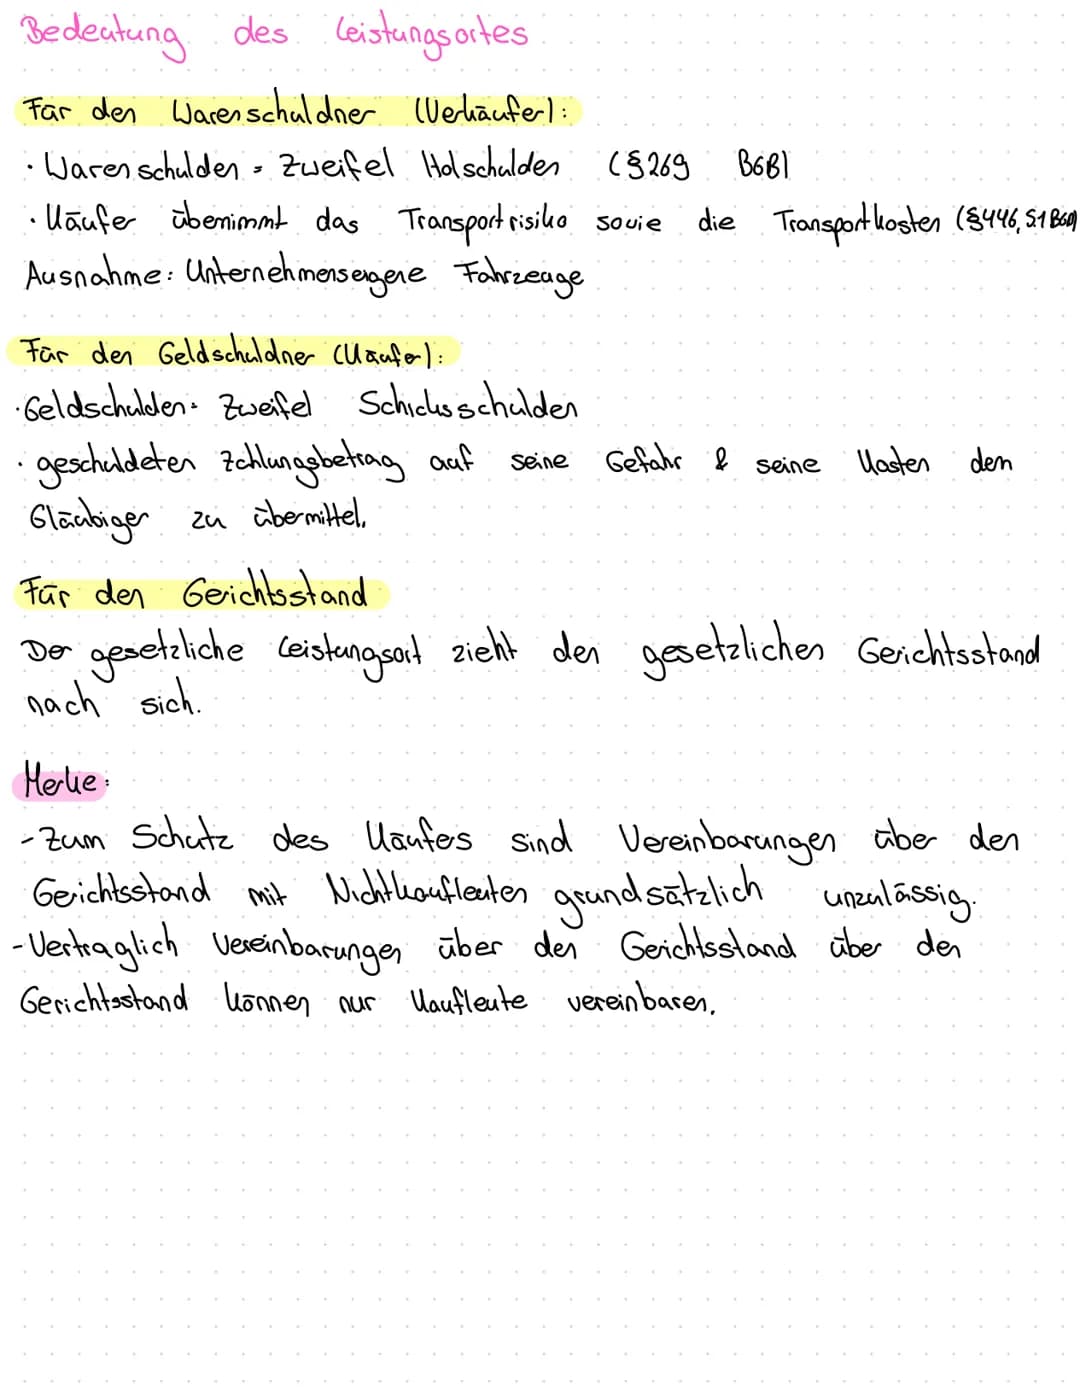 Bedeutung des Leistungsortes
Für den Warenschuldner (Verkäufer):
· Warenschulden = Zweifel Holschulden (§269 BGB)
· Käufer übernimmt das Transportrisiko sowie die Transportkosten (§446, S.1 BGB)
Ausnahme: Unternehmenseigene Fahrzeuge
Für den Geldschuldner (Käufer):
· Geldschulden = Zweifel Schicksschulden
· geschuldeten Zahlungsbetrag auf seine Gefahr & seine Kosten dem
Gläubiger zu übermittel.
Für den Gerichtsstand
Der gesetzliche Leistungsort zieht den gesetzlichen Gerichtsstand
nach sich.
Merke:
- Zum Schutz des Käufers sind Vereinbarungen über den
Gerichtsstand mit Nichtkaufleuten grundsätzlich unzulässig.
- Vertraglich Vereinbarungen über den Gerichtsstand über den
Gerichtsstand können nur Kaufleute vereinbaren.